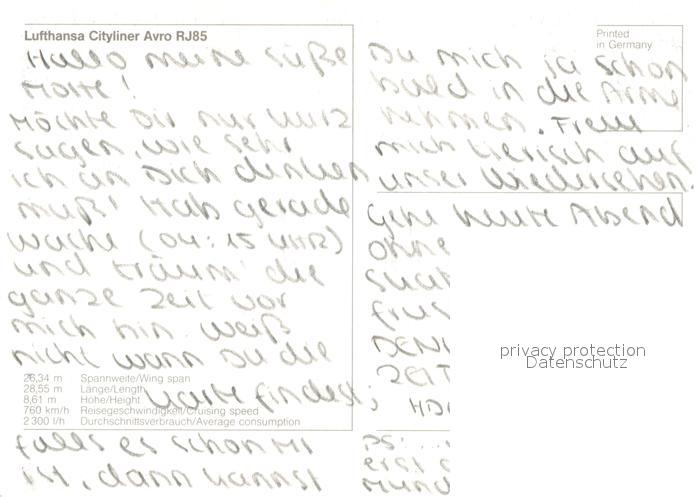 Lufthansa Cityliner Avro RJ85
Hallo meine süße
Motte!
Möchte Dir nur kurz
sagen, wie sehr
ich an Dich denken
muß! Hab gerade
Wache (04:15 UHR)
und träum' die
ganze Zeit vor
mich hin. Weiß
nicht wann Du die
26,34 m Spannweite/Wing span
28,55 m Länge/Length
Karte findest;
8,61 m Höhe/Height
760 km/h Reisegeschwindigkeit/Cruising speed
2 300 l/h Durchschnittsverbrauch/Average consumption
falls es schon Mi
ist, dann kannst
Printed
in Germany
Du mich ja schon
bald in die Arme
nehmen. Freu
mich tierisch auf
unser Wiedersehen!
Gehe heute Abend
ohne
ZEIT
HD
PS: ...
erst
privacy protection
Datenschutz